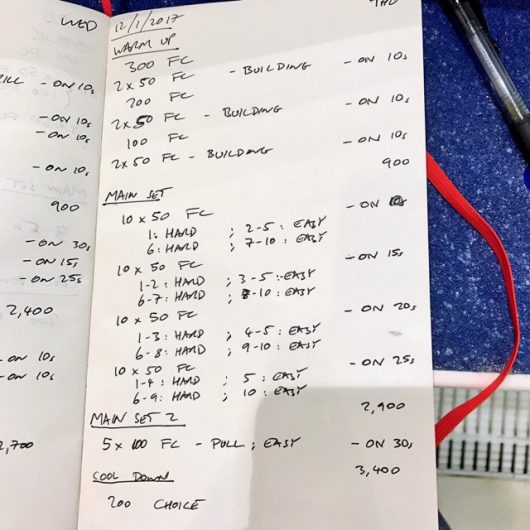 WED
ILL - ON 10s
- ON 10s
- ON 10s
- ON 10s
900
- ON 30s
- ON 15s
- ON 25s
2,400
- ON 10s
- ON 10s
2,700
THU
12/1/2017
WARM UP
300 FC
2 x 50 FC - BUILDING - ON 10s
200 FC
2 x 50 FC - BUILDING - ON 10s
100 FC
2 x 50 FC - BUILDING - ON 10s
900
MAIN SET
10 x 50 FC - ON 10s
1: HARD ; 2-5: EASY
6: HARD ; 7-10: EASY
10 x 50 FC - ON 15s
1-2: HARD ; 3-5: EASY
6-7: HARD ; 8-10: EASY
10 x 50 FC - ON 20s
1-3: HARD ; 4-5: EASY
6-8: HARD ; 9-10: EASY
10 x 50 FC - ON 25s
1-4: HARD ; 5: EASY
6-9: HARD ; 10: EASY
2,900
MAIN SET 2
5 x 100 FC - PULL ; EASY - ON 30s
3,400
COOL DOWN
200 CHOICE